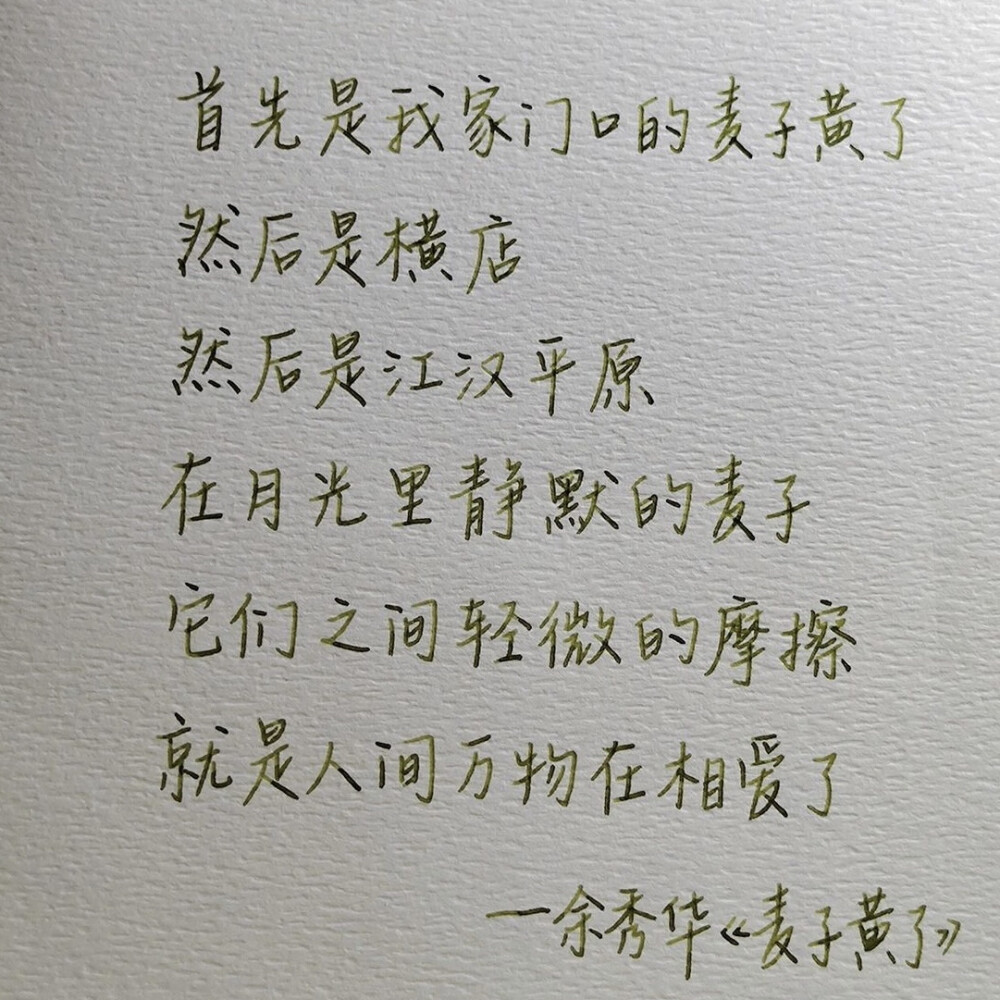 首先是我家门口的麦子黄了
然后是横店
然后是江汉平原
在月光里静默的麦子
它们之间轻微的摩擦
就是人间万物在相爱了
—余秀华《麦子黄了》